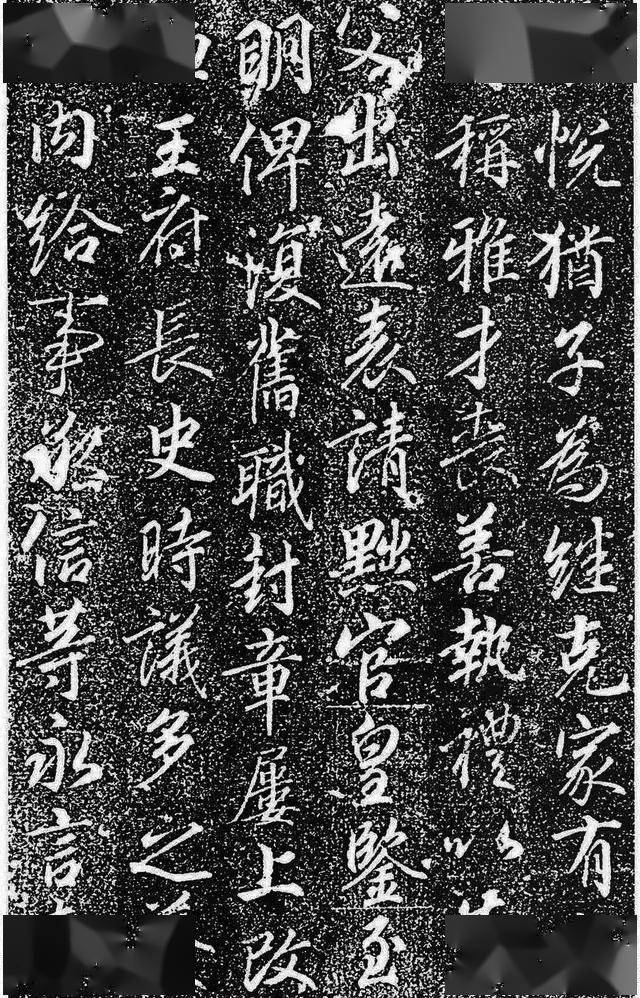 悅猶子爲継克家有
稱雅才喪善執禮以
父出遠表請黜官皇鑒至
明俾復舊職封章屢上改
王府長史時議多之
内給事永信等永言